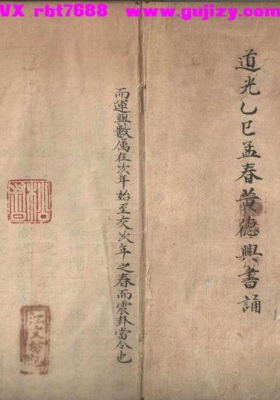 VX rbt7688 www.gujizy.com
道光乙巳孟春黄德興書誦
而運與數屬在次年始至交次年之春而震卦當令也